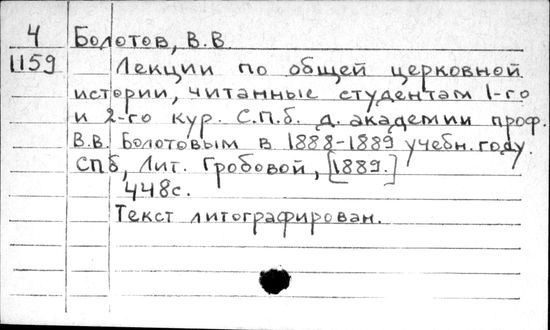 4 Болотов, В.В
1159 Лекции по общей церковной
истории, читанные студентам 1-го
и 2-го кур. С.П.б. д. академии проф.
В.В. Болотовым в 1888-1889 учебн. году.
СПб, Лит. Гробовой, [1889.]
448с.
Текст литографирован.